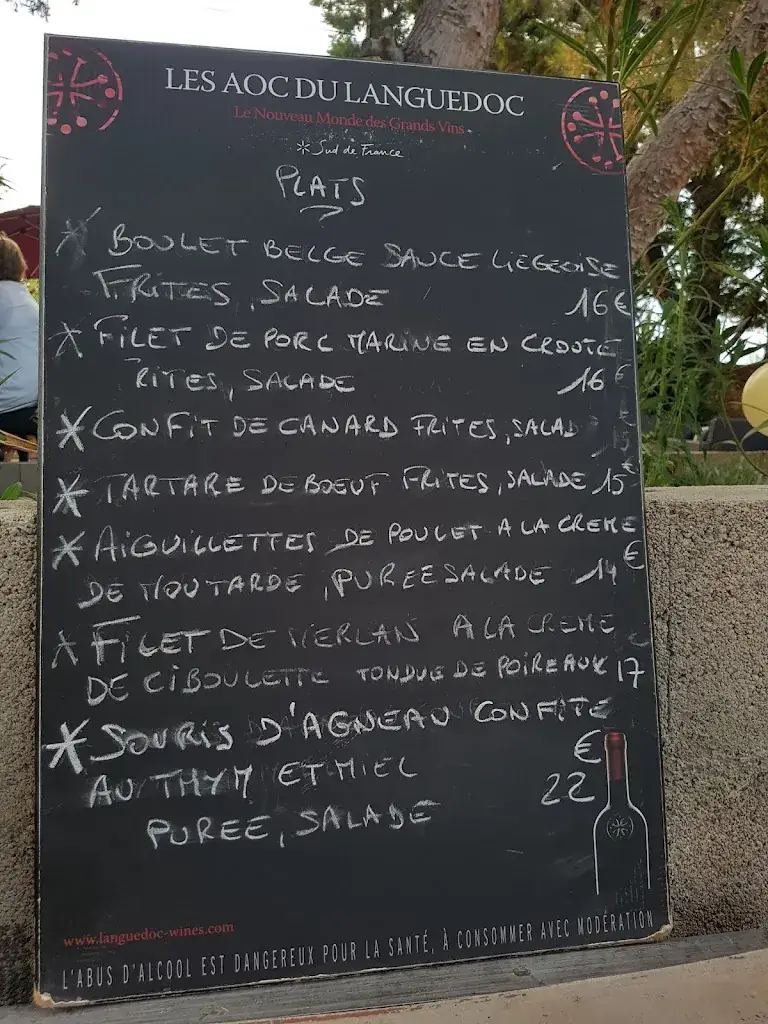 LES AOC DU LANGUEDOC
Le Nouveau Monde des Grands Vins
Sud de France
PLATS
* BOULET BELGE SAUCE LIEGEOISE
FRITES, SALADE 16€
* FILET DE PORC MARINE EN CROUTE
RITES, SALADE 16€
* CONFIT DE CANARD FRITES, SALAD 15€
* TARTARE DE BOEUF FRITES, SALADE 15€
* AIGUILLETTES DE POULET A LA CREME
DE MOUTARDE, PUREE SALADE 14€
* FILET DE MERLAN A LA CREME
DE CIBOULETTE TONDUE DE POIREAUX 17€
* SOURIS D'AGNEAU CONFITE
AU THYM ET MIEL 22€
PUREE, SALADE
www.languedoc-wines.com
L'ABUS D'ALCOOL EST DANGEREUX POUR LA SANTÉ, À CONSOMMER AVEC MODÉRATION